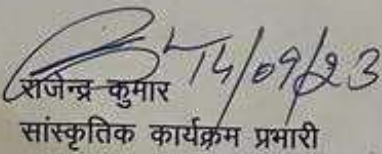 14/09/23
राजेन्द्र कुमार
सांस्कृतिक कार्यक्रम प्रभारी